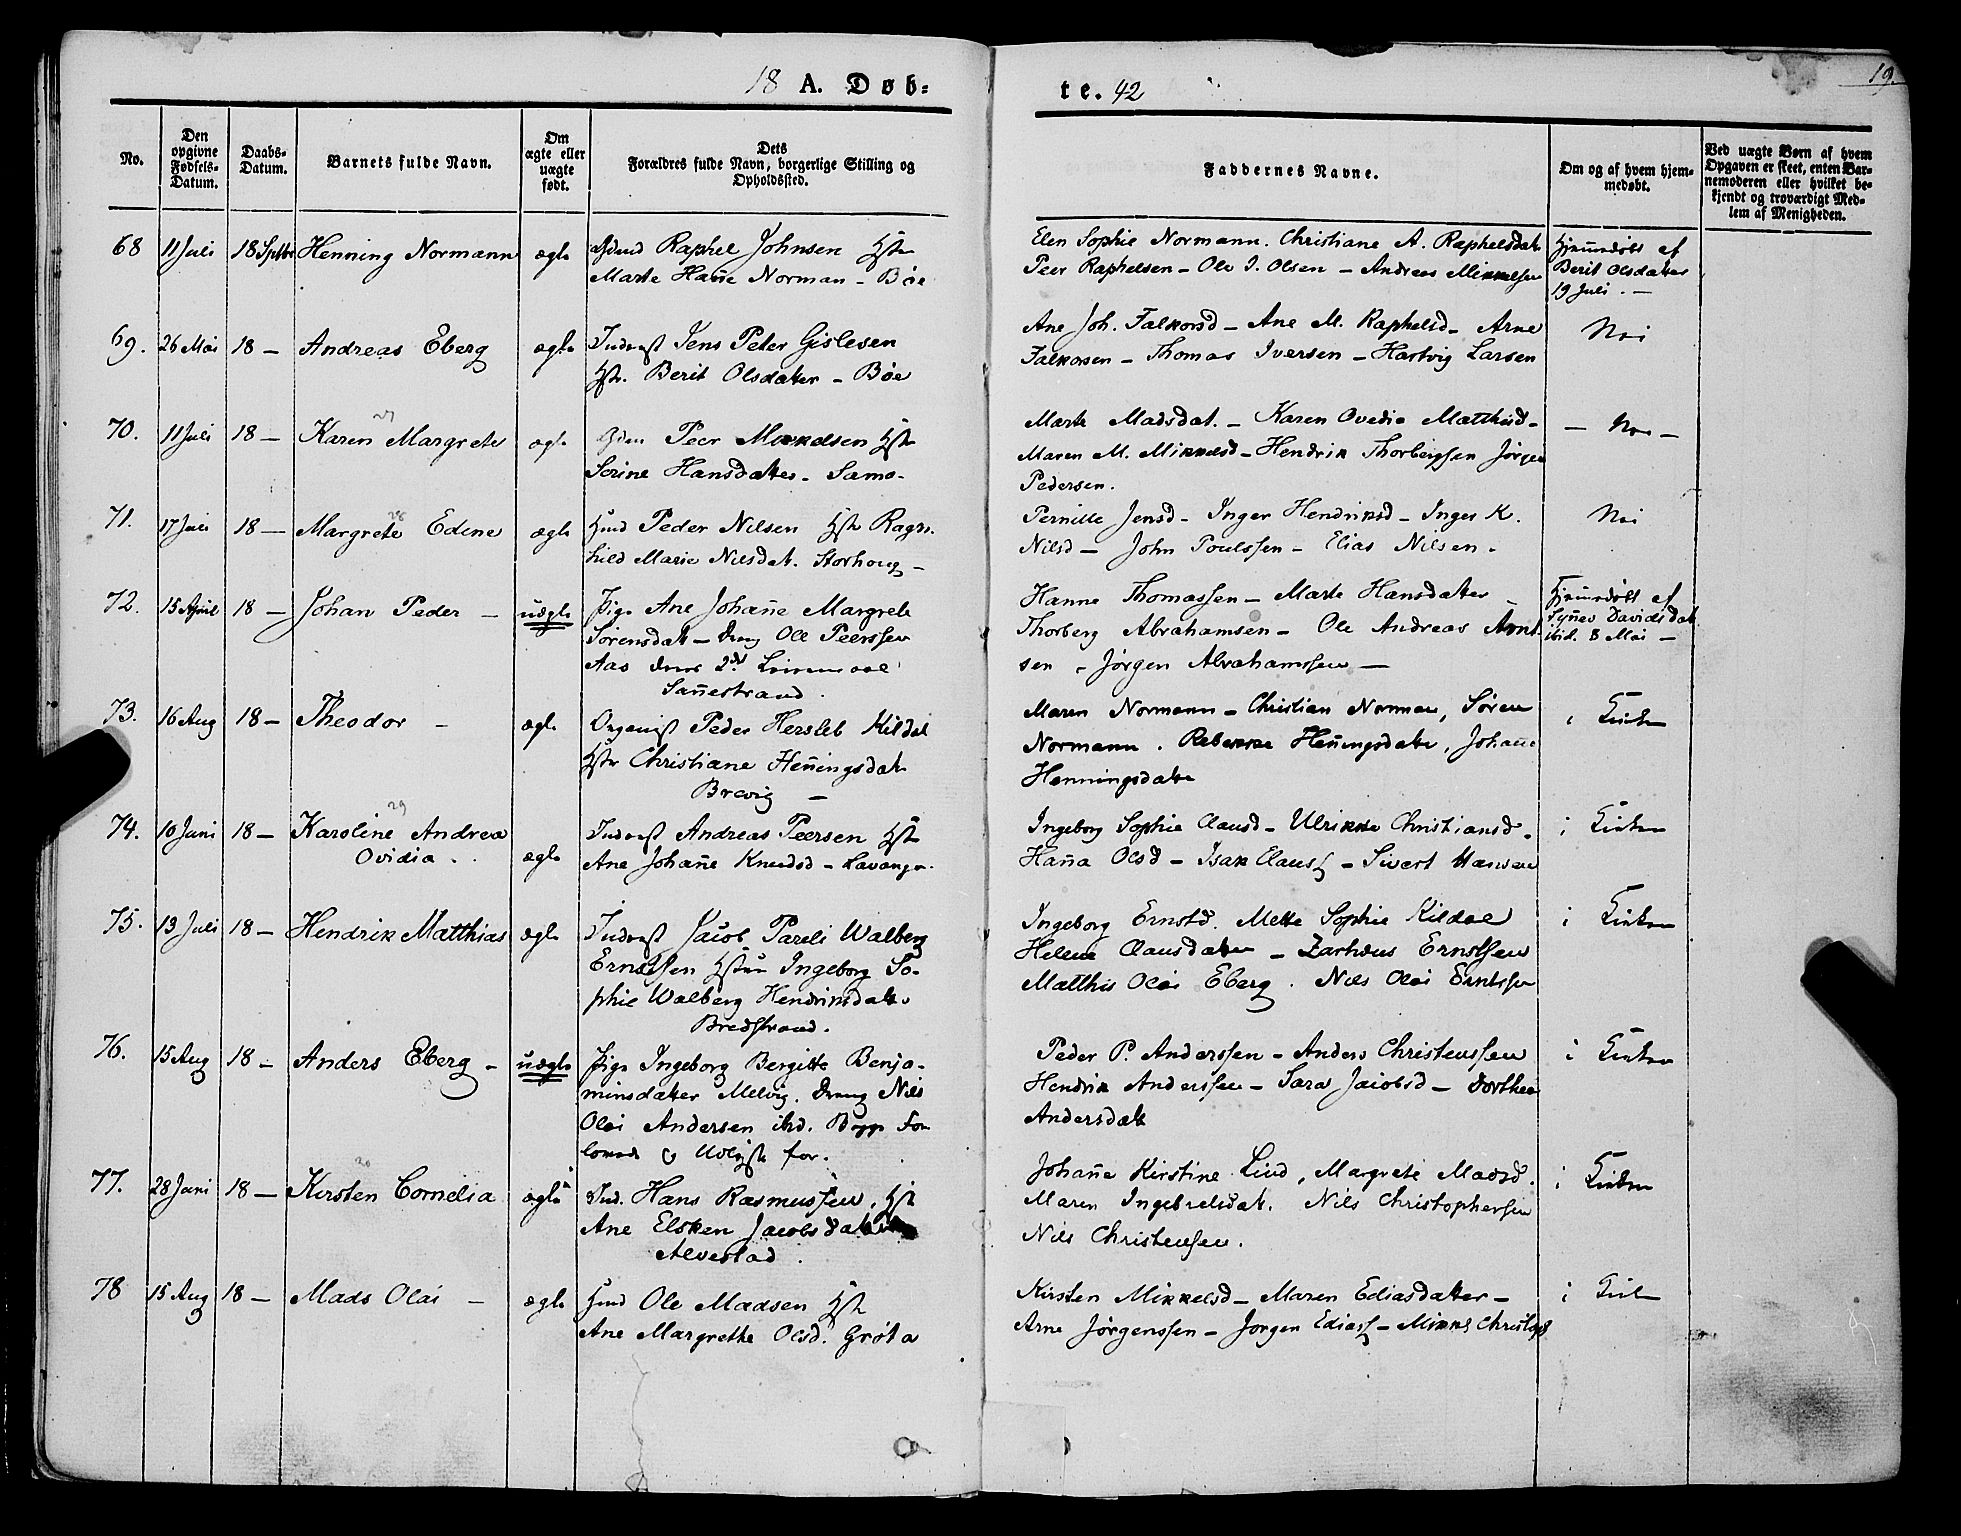 18 A. Døb= te. 42
19.
No.
Den opgivne Fødsels-Datum.
Daabs-Datum.
Barnets fulde Navn.
Om ægte eller uægte født.
Dets Forældres fulde Navn, borgerlige Stilling og Opholdssted.
Faddernes Navne.
Om og af hvem hjem-medøbt.
Ved uægte Børn af hvem Opgaven er skeet, enten Bar-nemoderen eller hvilket be-kjendt og troværdigt Med-lem af Menigheden.
68 11 Juli 18 Sptbr Henning Normann ægte
Raphel Johnsen Hstr
Marte Hañe Norman - Bøe
Elen Sophie Normann. Christiane A. Raphelsdatr
Peer Raphelsen - Ole J. Olsen - Andreas Mikkelsen
Hjemmedøbt af
Berit Olsdatter
19 Juli. -
69. 26 Mai 18 - Andreas Eberg ægte
Inderst Jens Peter Gislesen
Hstr. Berit Olsdatter - Bøe
Ane Joh. Falkorsd - Ane M. Raphelsd - Arne
Falkorsen - Thomas Iversen - Hartvig Larsen
Nei
70. 11 Juli 18 - Karen Margrete ægte
27
Peer Mikkelsen Hstr
Serine Hansdatter - Samo-
Marte Madsdat. - Karen Ovedia Matthisd -
Maren M. Mikkelsd - Hendrik Thorbergsen Jørgen
Pedersen.
- Nei -
71. 17 Juli 18 - Margrete Edine ægte
28
Hmd Peder Nilsen Hstr Ragn-
hild Marie Nilsdat. Storhoug -
Pernille Jensd - Inger Hendriksd - Inger K.
Nilsd - John Poulssen - Elias Nilsen -
Nei
72. 15 April 18 - Johan Peder - uægte
Pige Ane Johañe Margrete
Sørensdat - Dreng Ole Peerssen
Aas 2det
Sañestrand.
Hanne Thomassen - Marte Hansdatter -
Thorberg Abrahamsen - Ole Andreas Arnt-
sen - Jørgen Abrahamssen -
Hjemmedøbt af
Syñev Davidsdat
ibid. 8 Mai -
73. 16 Aug 18 - Theodor - ægte
Organist Peder Hersleb Kildal
Hstr Christiane Heñingsdat
Brevig -
Maren Normann - Christian Norman, Søren
Normann. Rebekke Heñingsdatr, Johañe
Henningsdatr
i Kirken
74. 10 Juni 18 - Karoline Andrea ægte
29
Ovidia.
Inderst Andreas Peersen Hstr
Ane Johañe Knudsd - Lavange.
Ingeborg Sophie Clausd - Ulrikke Christiansd.
Haña Olsd - Isak Claus - Sivert Hansen
i Kirken
75. 13 Juli 18 - Hendrik Matthias ægte
Inderst Jacob Pareli Walberg
Ernstsen Hstru Ingeborg So-
phie Walberg Hendriksdatr
Bredstrand.
Ingeborg Ernstd. Mette Sophie Kildal
Helene Clausdatter - Zarhæus Ernstsen
Matthis Olai Eberg. Nils Olai Erntsen
i Kirken
76. 15 Aug 18 - Anders Eberg - uægte
Pige Ingeborg Bergitte Benja-
minsdatter Melvig. Dreng Nils
Olai Andersen ibid. Begge For-
lovede for.
Peder P. Anderssen - Anders Christenssen
Hendrik Anderssen - Sara Jacobsd - Dorthea
Andersdatr
i Kirken
77. 28 Juni 18 - Kirsten Cornelia ægte
Ind. Hans Rasmussen, Hstr
Ane Elsken Jacobsdatter
Alvestad.
Johañe Kirstine Lind, Margrete Madsd.
Maren Ingebretsdat. Nils Christophersen
Nils Christensen.
i Kirken
78 15 Aug 18 - Mads Olai - ægte
Hmd Ole Madsen Hstr
Ane Margrethe Olsd. Grøta
Kirsten Mikkelsd - Maren Ediasdatter -
Arne Jørgenssen - Jørgen Edias - Mikkel Christoph
i Kirken